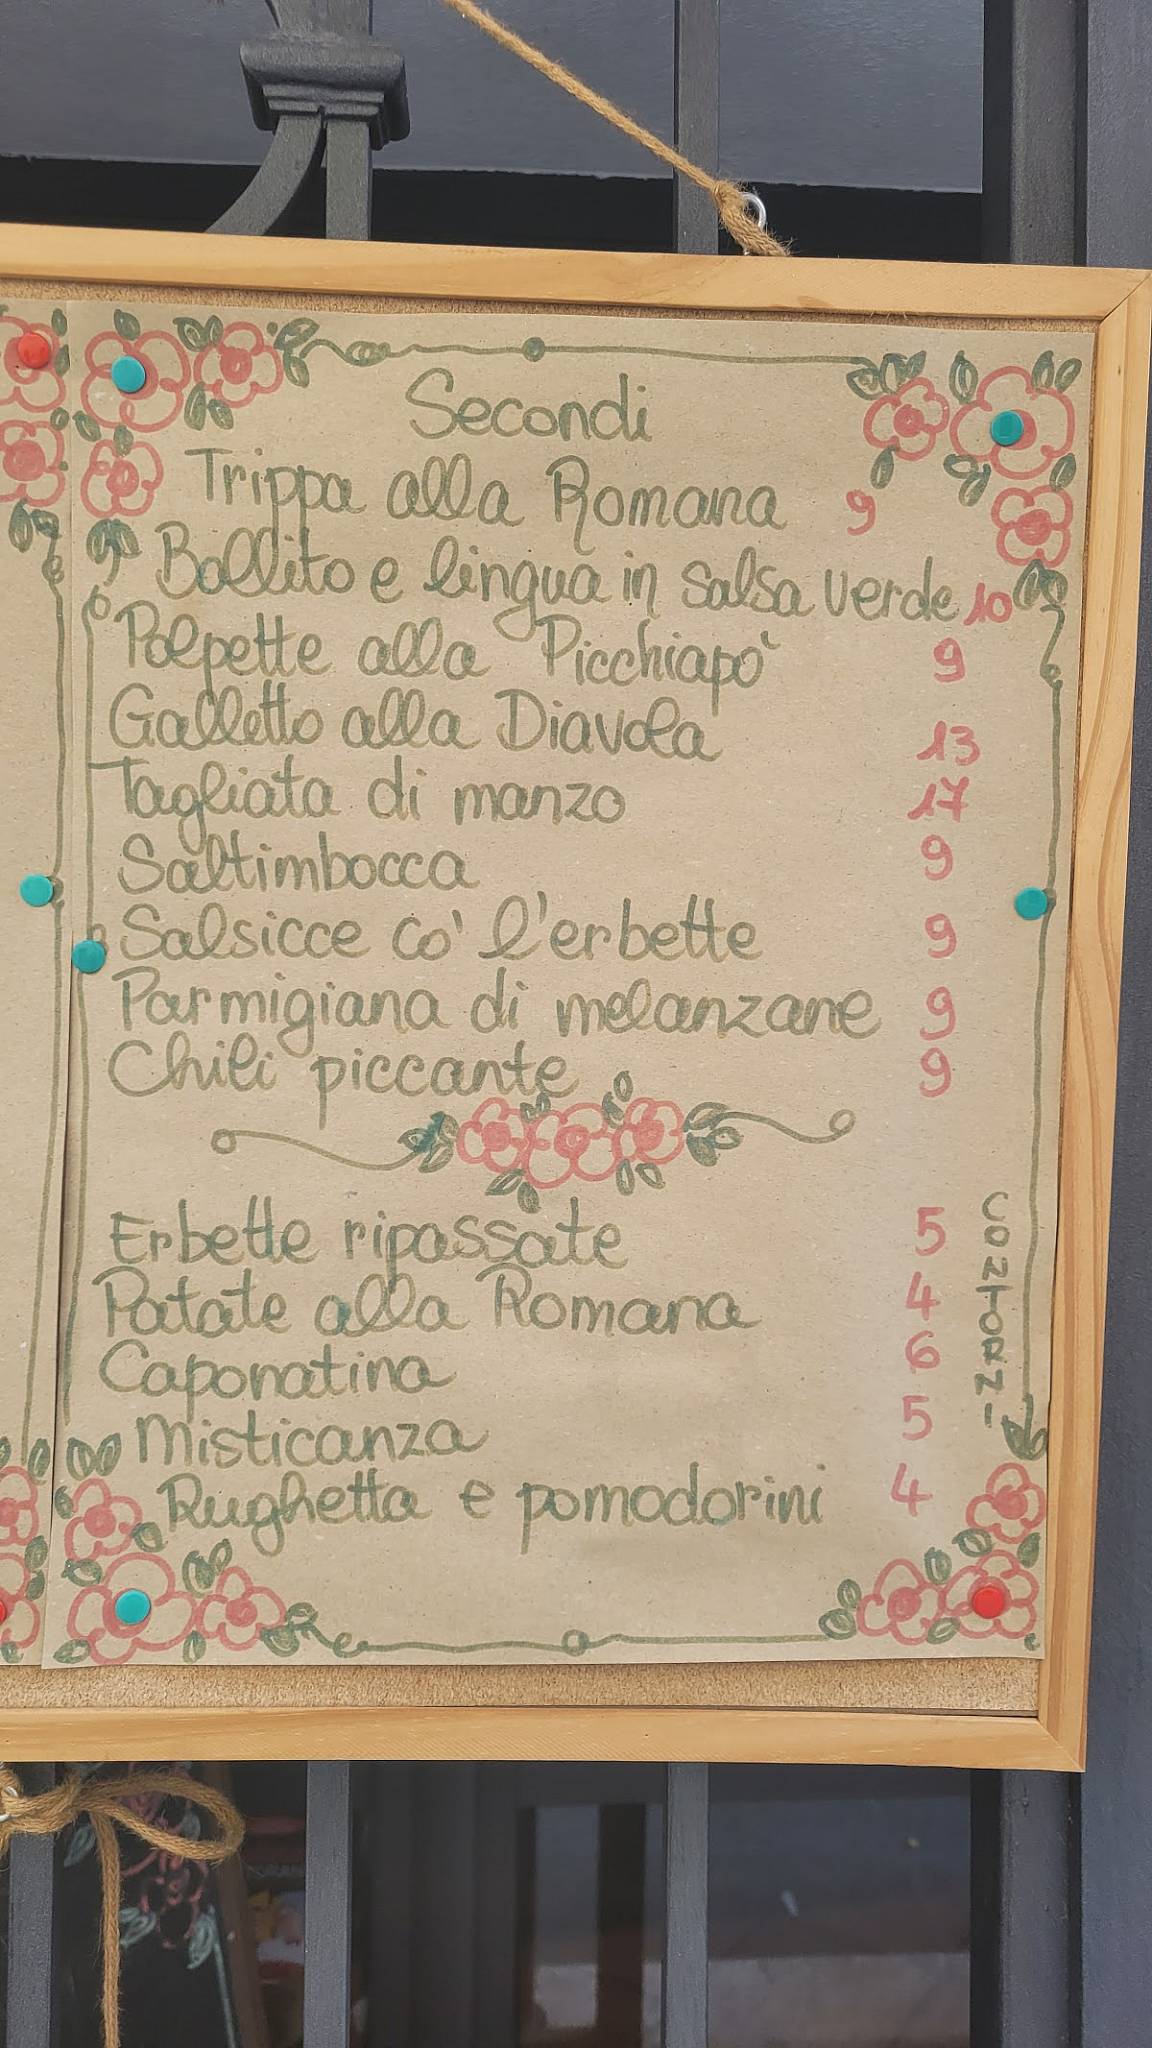 Secondi
Trippa alla Romana 9
Bollito e lingua in salsa verde 10
Polpette alla Picchiapò 9
Galletto alla Diavola 13
Tagliata di manzo 17
Saltimbocca 9
Salsicce co' l'erbette 9
Parmigiana di melanzane 9
Chili piccante 9
CONTORNI
Erbette ripassate 5
Patate alla Romana 4
Caponatina 6
Misticanza 5
Rughetta e pomodorini 4